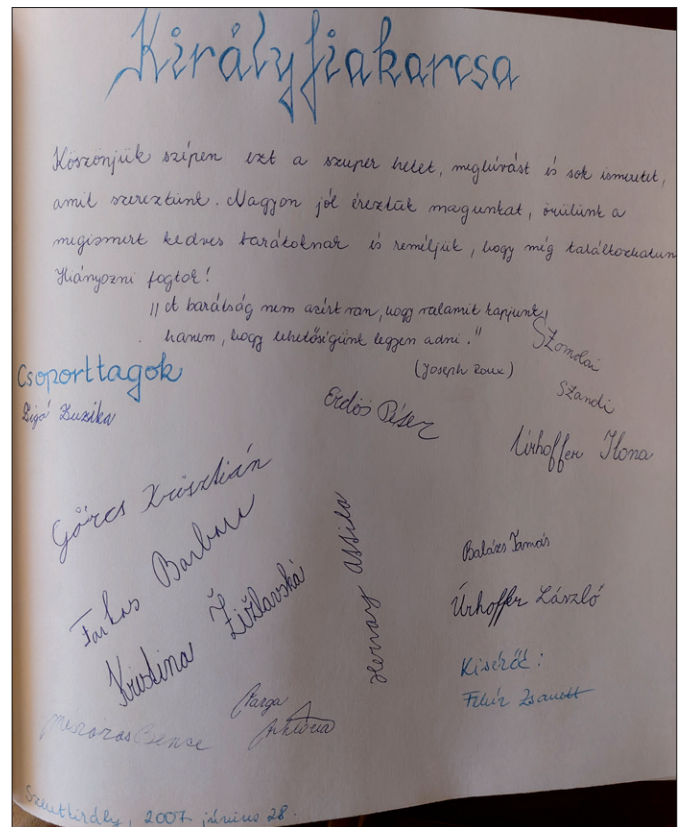 Királyfiakarcsa
Köszönjük szépen ezt a szuper hetet, meghívást és sok ismeretet,
amit szereztünk. Nagyon jól éreztük magunkat, örülünk a
megismert kedves barátoknak és reméljük, hogy még találtozhatun
Hiányozni fogtok!
"A barátság nem azért van, hogy valamit kapjunk,
hanem, hogy lehetőségünk legyen adni."
(Joseph Roux)
Szomolai
Szandi
Csoporttagok
Zsigó Zuzika
Erdős Péter
Úrhoffer Ilona
Görcs Krisztián
Farkas Barbara
Kristina Žižlavská
Hervay Attila
Balázs Tamás
Úrhoffer László
Kisérők:
Fehér Zsanett
Varga
Viktória
Mészáros Bence
Szentkirály, 2007 június 28.